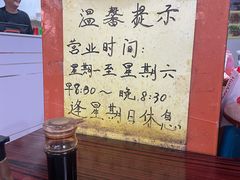 溫馨提示
营业时间:
星期一至星期六
早8:30～晚8:30
逢星期日休息